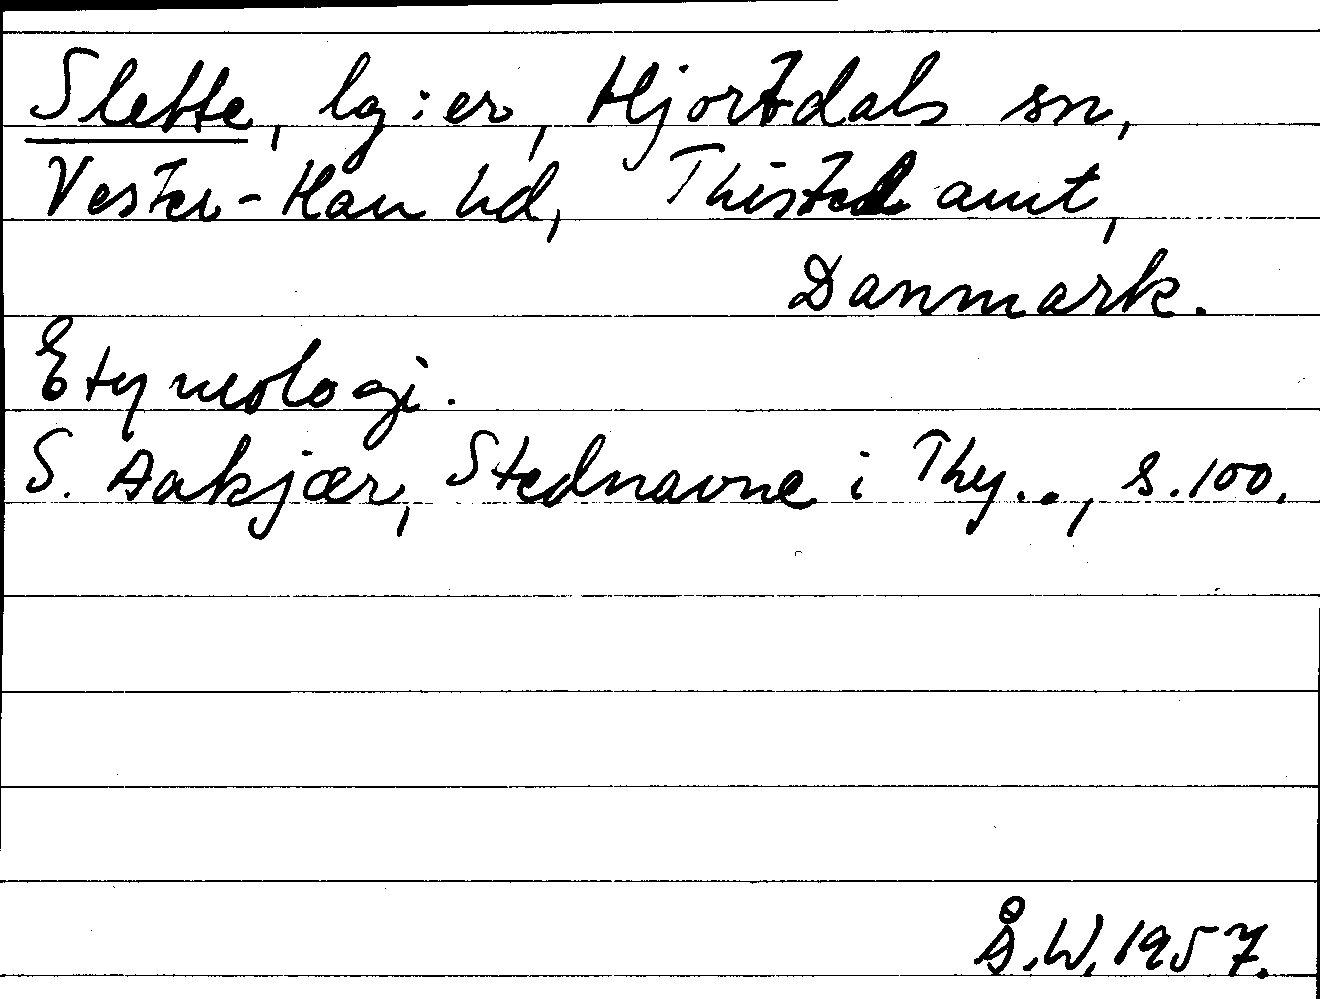 Slette, lg:er, Hjortdals sn,
Vester-Han hd, Thisted amt,
Danmark.
Etymologi.
S. Aakjær, Stednavne i Thy.., s.100.
Å.W. 1957.